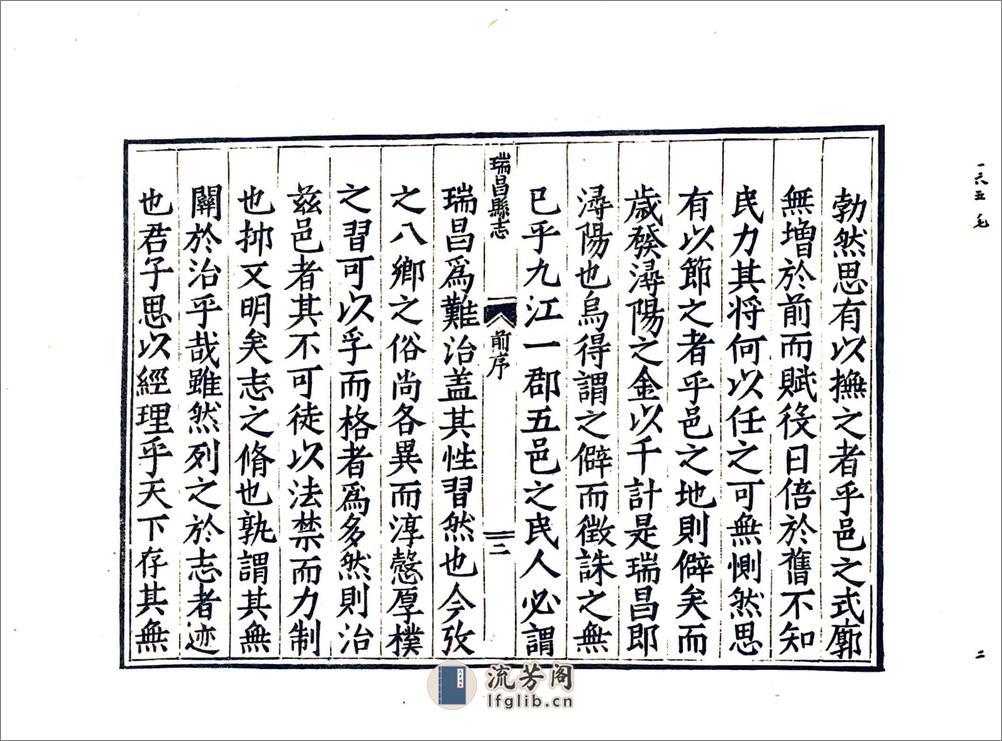 勃然思有以撫之者乎邑之式廓
無增於前而賦役日倍於舊不知
民力其将何以任之可無惻然思
有以節之者乎邑之地則僻矣而
歳發潯陽之金以千計是瑞昌即
潯陽也烏得謂之僻而徵誅之無
已乎九江一郡五邑之民人必謂
瑞昌縣志
前序
二
瑞昌爲難治盖其性習然也今攷
之八鄉之俗尚各異而淳慤厚樸
之習可以孚而格者爲多然則治
兹邑者其不可徒以法禁而力制
也抑又明矣志之脩也孰謂其無
關於治乎哉雖然列之於志者迹
也君子思以經理乎天下存其無
二
流芳阁
lfglib.cn